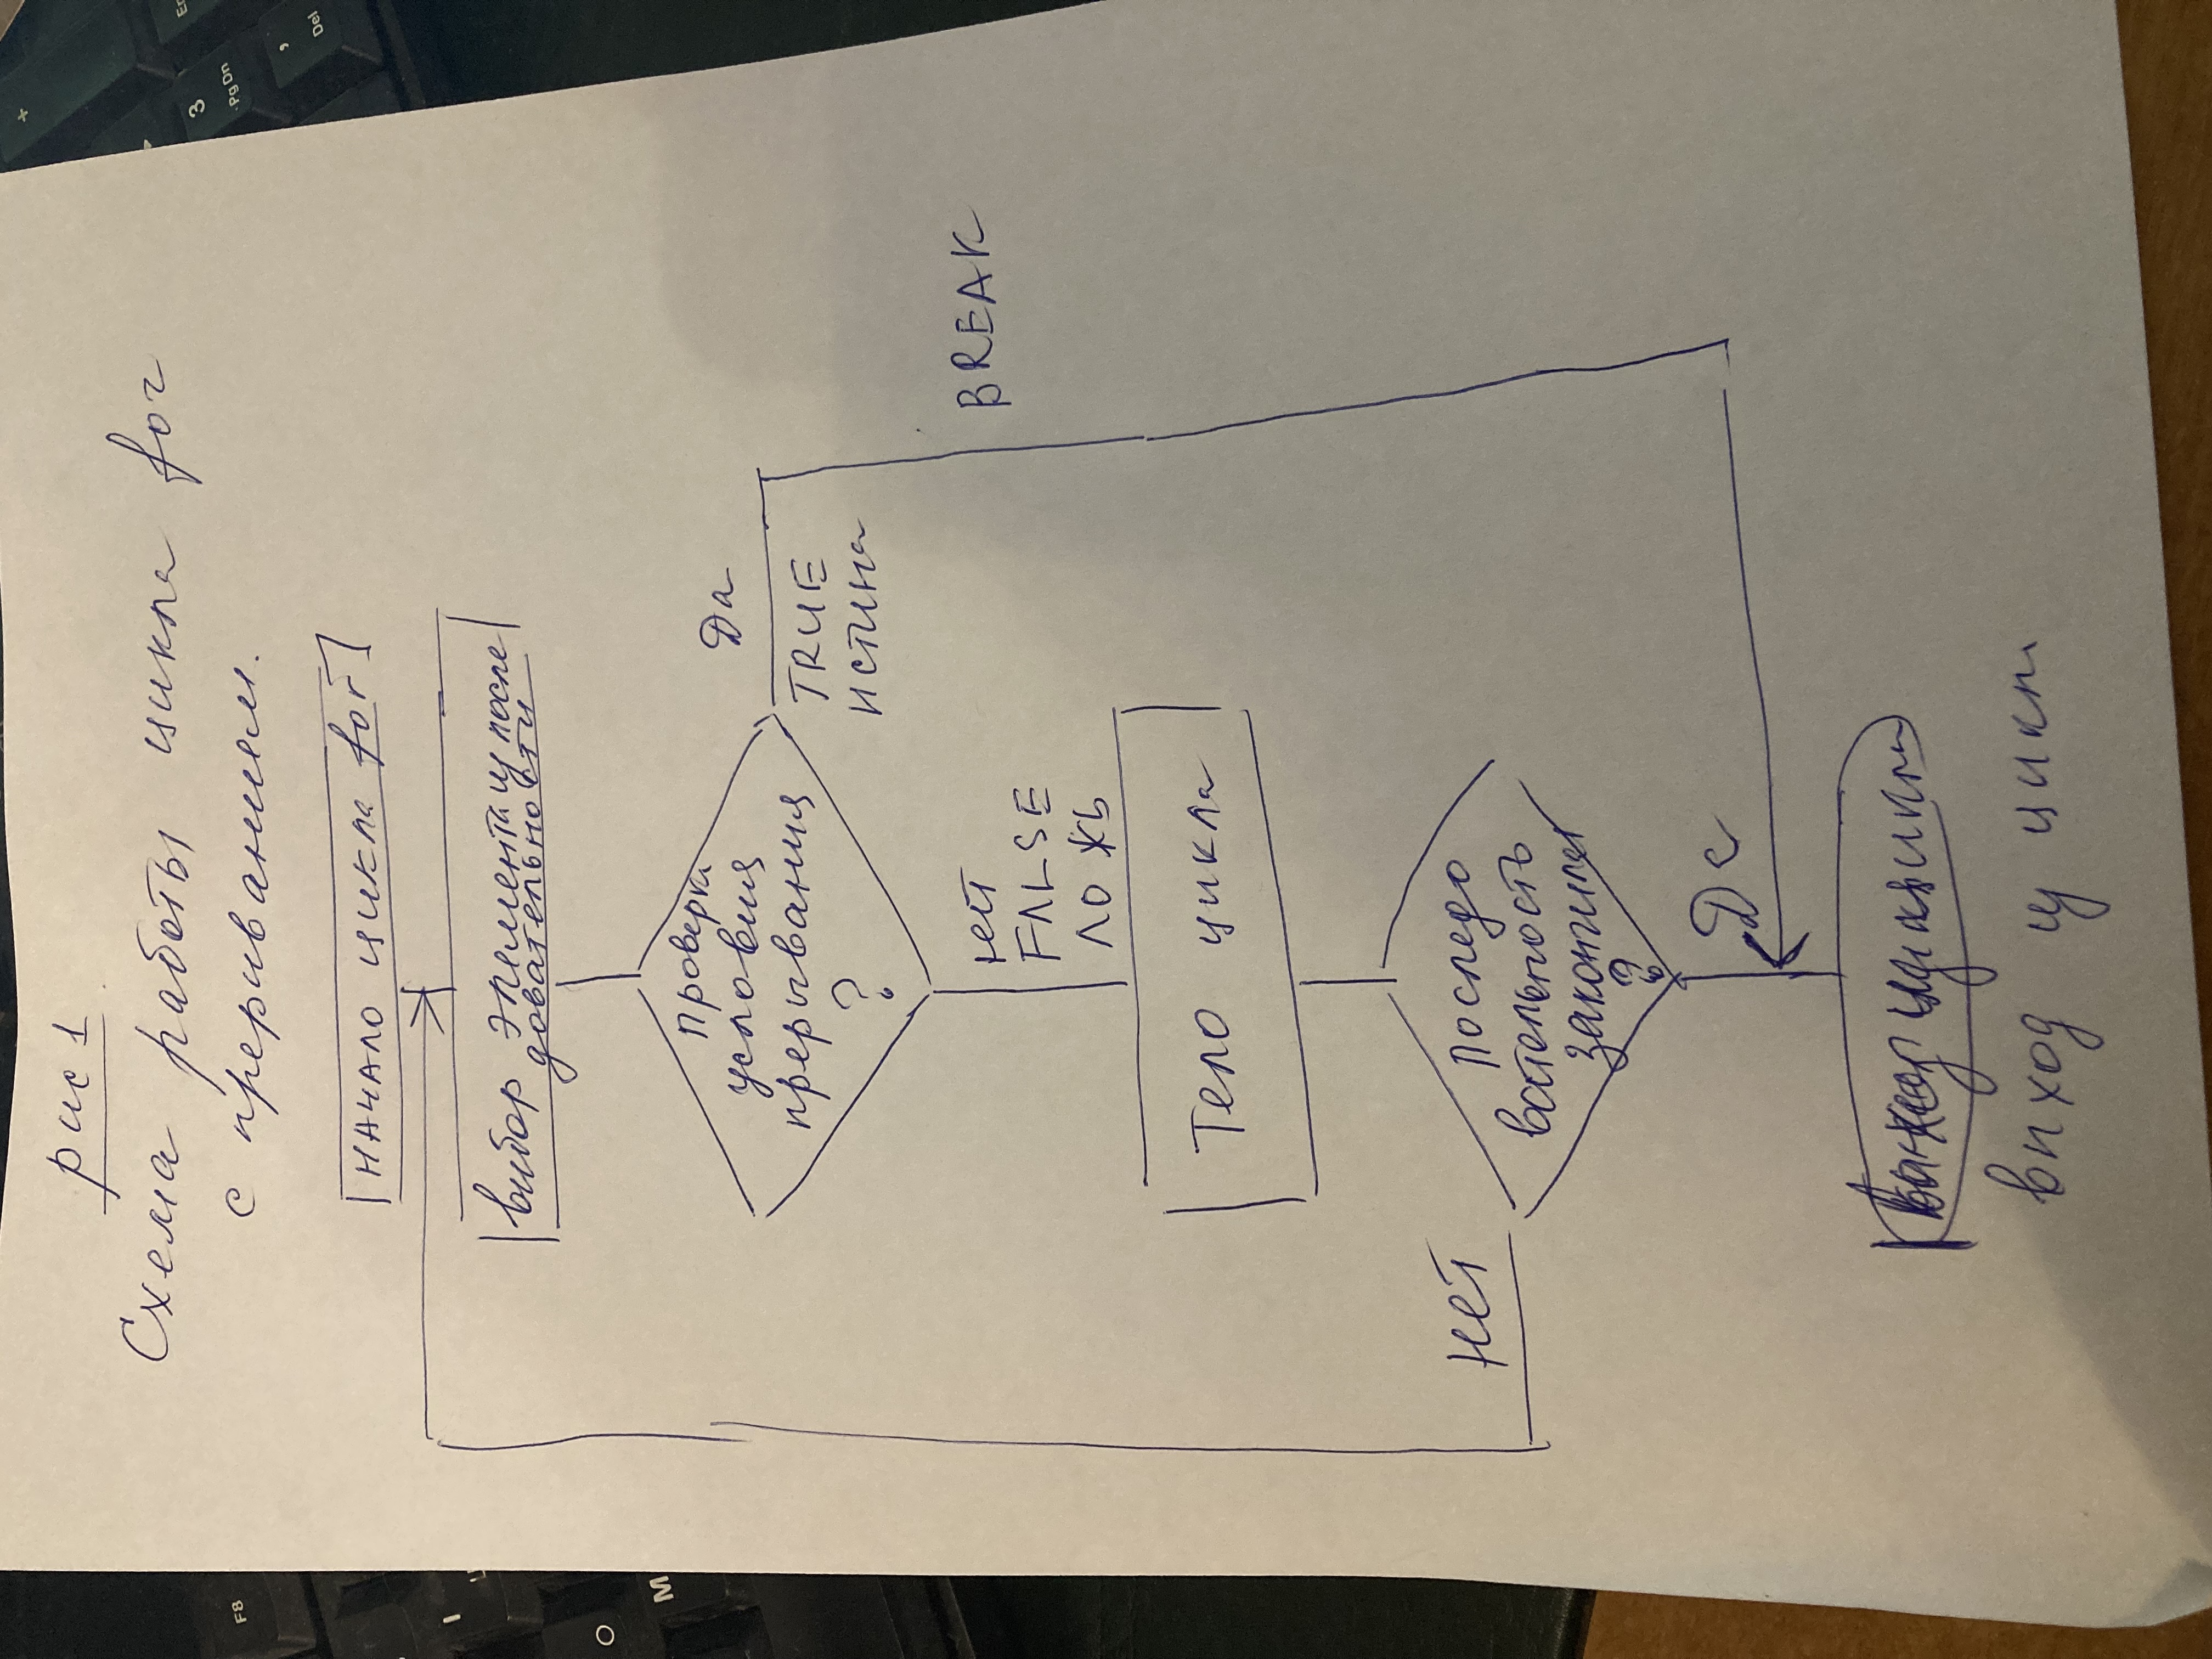 рис 1
Схема работы цикла for
с прериванием.
НАЧАЛО цикла for
выбор элемента из после
довательности
Проверка
условия
прерывания
?
Да
TRUE
истина
BREAK
нет
FALSE
ЛОЖЬ
Тело цикла
НЕТ
Последо
вательность
закончилась
?
Да
выход из цикла